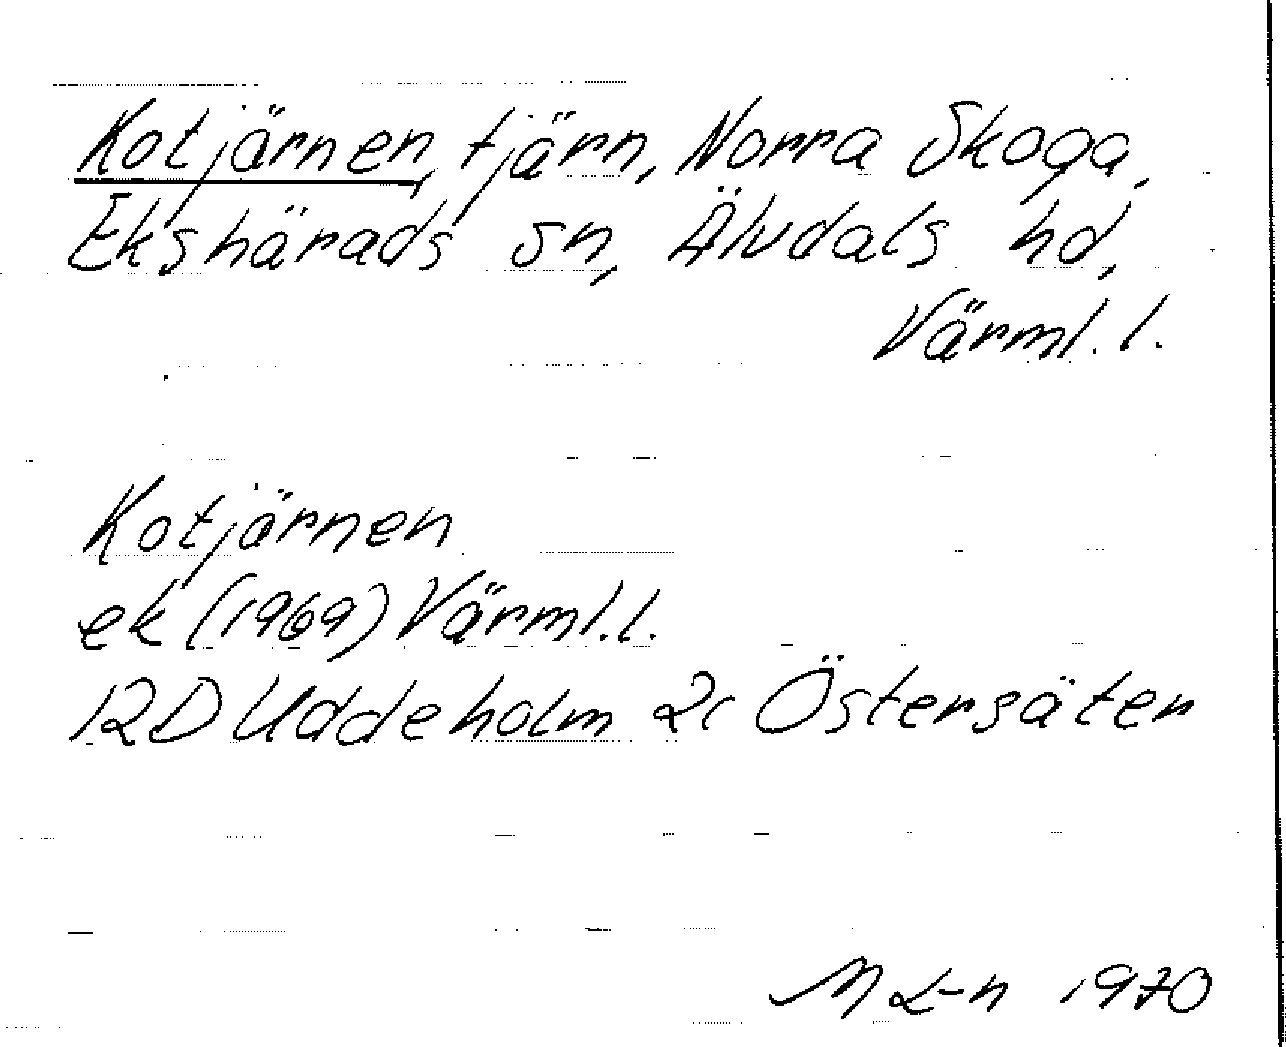 Kotjärnen, tjärn, Norra Skoga,
Ekshärads sn, Älvdals hd,
Värml. l.
Kotjärnen
ek (1969) Värml. l.
12D Uddeholm 2c Östersäter
M L-n 1970